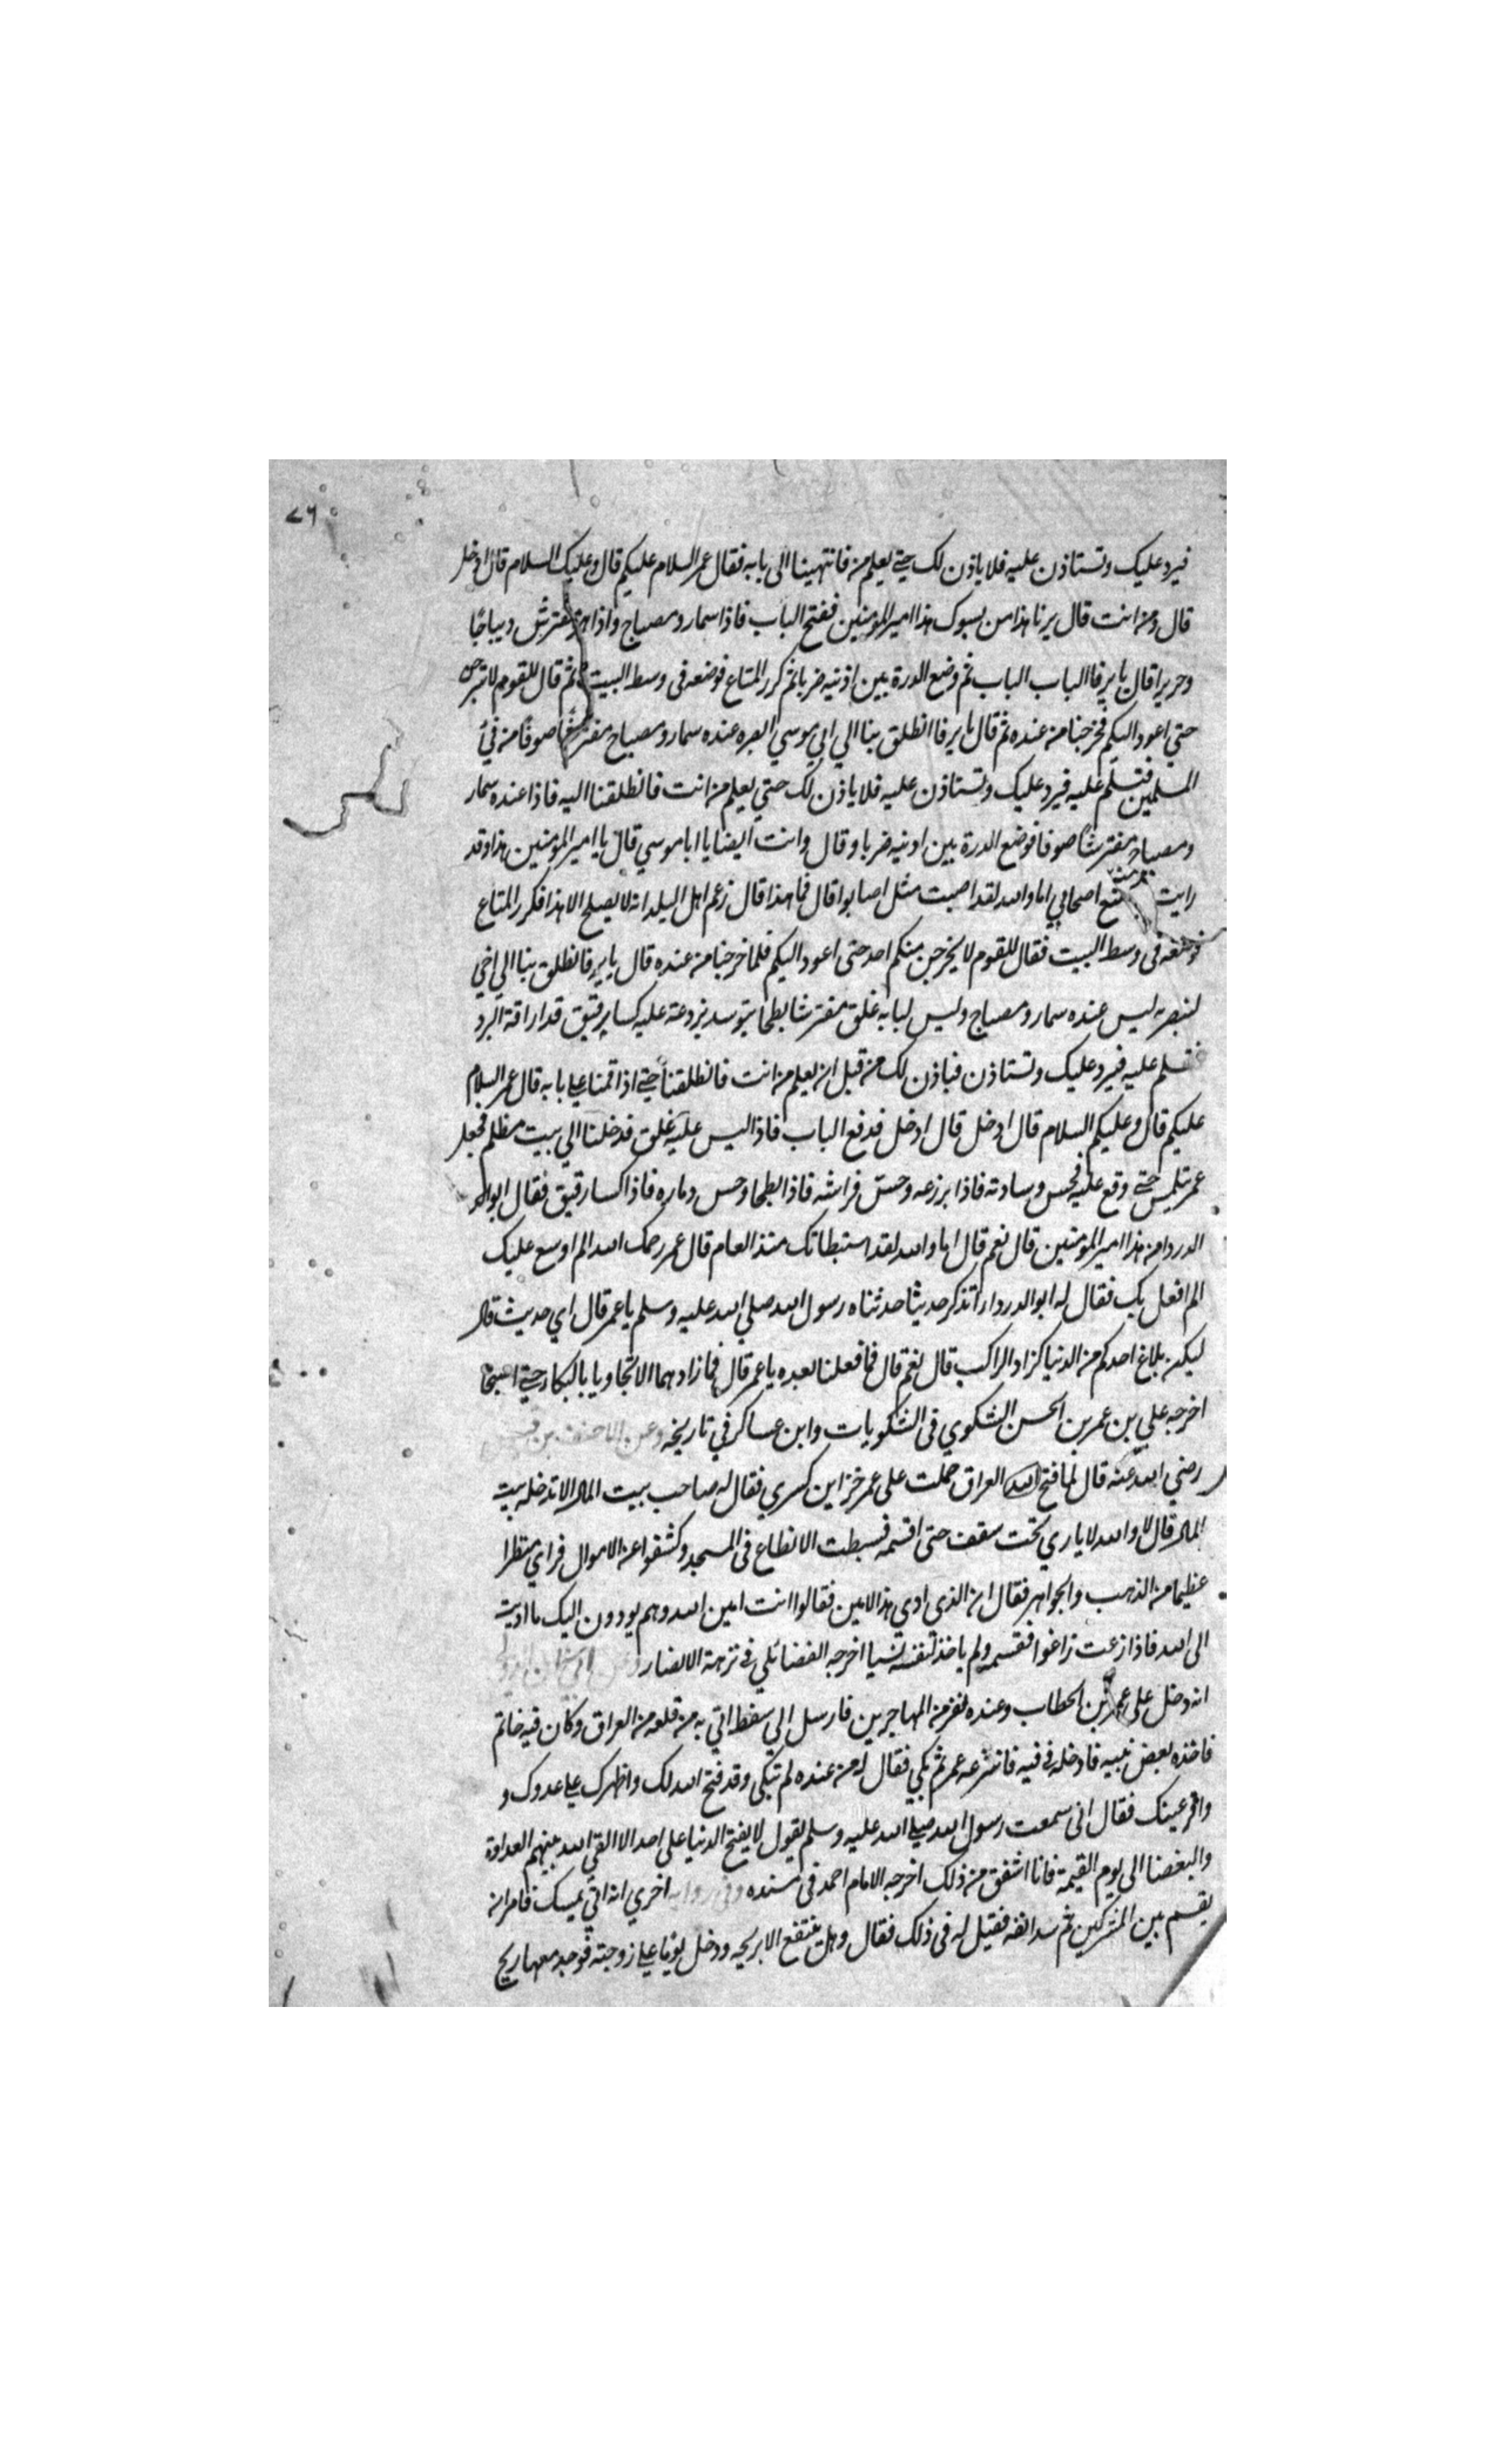 ٧٦
فيرد عليك وتستاذن عليه فلا ياذن لك حتى يعلم من فانتهينا الى بابه فقال عمر السلام عليكم قال وعليك السلام قال ادخل
قال ومن انت قال يرنا هذا من يسوك هذا امير المومنين ففتح الباب فاذا سمار ومصباح واذا هو مفترش ديباجا
وحريرا قال يا يرفا الباب الباب ثم وضع الدرة بين اذنيه ضربا ثم كرر المتاع فوضعه فى وسط البيت ثم قال للقوم لا تبرحن
حتي اعود اليكم فخرجنا من عنده ثم قال يا يرفا انطلق بنا الي ابي موسي ابصره عنده سمار ومصباح مفترشا صوفا من في
المسلمين فتسلم عليه فيرد عليك وتستاذن عليه فلا ياذن لك حتي يعلم من انت فانطلقنا اليه فاذا عنده سمار
ومصباح مفترشا صوفا فوضع الدرة بين اذنيه ضربا وقال وانت ايضا يا ابا موسي قال يا امير المومنين هذا وقد
رايت صنع اصحابي اما والله لقد اصبت مثل اصابوا قال فما هذا قال زعم اهل البلد انه لا يصلح الا هذا فكرر المتاع
فوضعه فى وسط البيت فقال للقوم لا يخرجن منكم احد حتى اعود اليكم فلما خرجنا من عنده قال يا يرفا نطلق بنا الي اخي
لنبصره ليس عنده سمار ومصباح وليس لبابه غلق مفترشا بطحا متوسد بردعة عليه كسا رقيق قد اراقة البرد
فتسلم عليه فيرد عليك وتستاذن فياذن لك من قبل ان يعلم من انت فانطلقنا حتى اذا قمنا على بابه قال عمر السلام
عليكم قال وعليكم السلام قال ادخل قال ادخل فدفع الباب فاذا ليس عليه غلق فدخلنا الي بيت مظلم فجعل
عمر يتلمس حتى وقع عليه فجس وسادته فاذا برزعه وجس فراشه فاذا بطحا وجس دثاره فاذا كسا رقيق فقال ابو
الدردا من هذا امير المومنين قال نعم قال اما والله لقد استبطاتك منذ العام قال عمر رحمك الله الم اوسع عليك
الم افعل بك فقال له ابو الدرداء اتذكر حديثا حدثناه رسول الله صلي الله عليه وسلم يا عمر قال اي حديث قال
ليكن بلاغ احدكم من الدنيا كزاد الراكب قال نعم قال فما فعلنا بعده يا عمر قال فما زاد هما الا تجاوبا بالبكاء حتى اصبحا
اخرجه علي بن عمر بن الحسن الشكوي فى الشكويات وابن عساكر في تاريخه وعن الاحنف بن قيس
رضي الله عنه قال لما فتح الله العراق حملت على عمر خزاين كسري فقال له صاحب بيت المال الا تدخله بيت
المال قال لا والله لا ياري تحت سقف حتى اقسمه فبسطت الانطاع فى المسجد وكشفوا عن الاموال فراي منظرا
عظيما من الذهب والجواهر فقال ان الذى ادي هذا لامين فقالوا انت امين الله وهم يودون اليك ما اديت
الى الله فاذا زعت زاغوا فقسمه ولم ياخذ لنفسه شيا اخرجه الفضائلي فى نزهة الابصار وعن ابي سنان الدؤلي
انه دخل على عمر بن الخطاب وعنده نفر من المهاجرين فارسل الي سفط اتي به من قلعه من العراق وكان فيه خاتم
فاخذه بعض بنيه فادخله فى فيه فانتزعه عمر ثم بكي فقال له من عنده لم تبكى وقد فتح الله لك واظهرك على عدوك و
واقر عينك فقال انى سمعت رسول الله صلى الله عليه وسلم يقول لا يفتح الدنيا على احد الا القي الله بينهم العداوة
والبغضا الى يوم القيمة فانا اشفق من ذلك اخرجه الامام احمد فى مسنده وفى رواية اخري انه اتي بمسك فامر ان
يقسم بين المشركين ثم سد انفه فقيل له فى ذلك فقال وهل ينتفع الا بريحه ودخل يوما على زوجته فوجد معها ريح